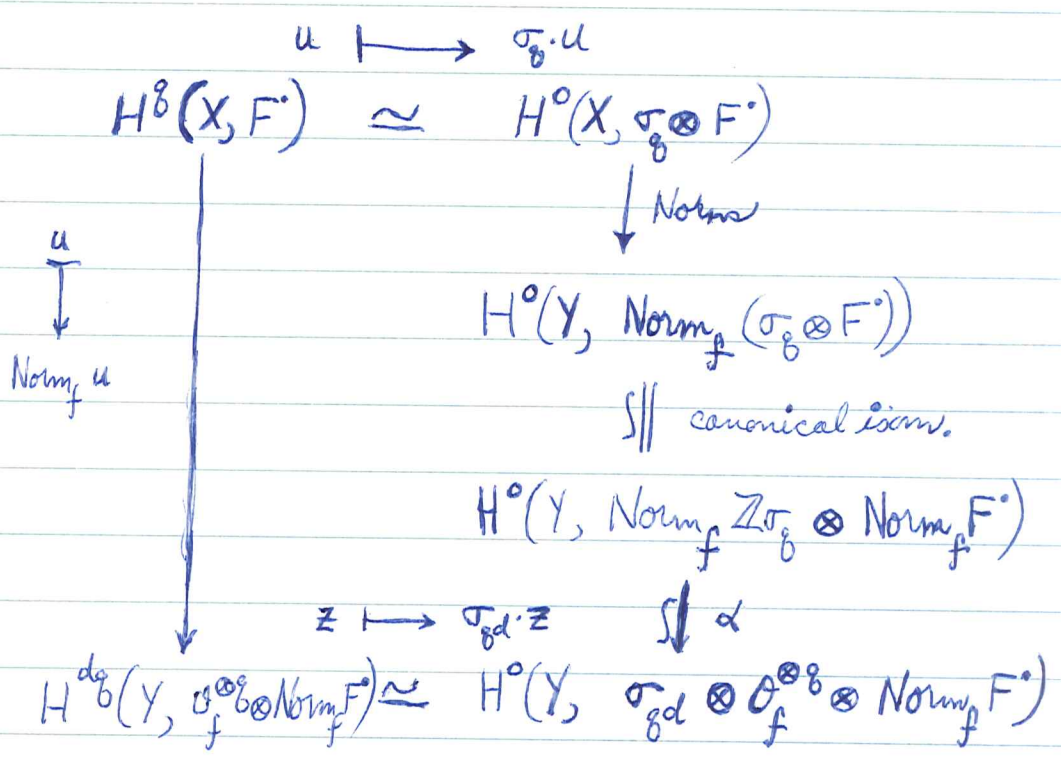 u ⟼ σ_q·u
H^q(X, F^•) ≃ H^0(X, σ_q ⊗ F^•)
↓ Norms
u
↧
Norm_f u
H^0(Y, Norm_f (σ_q ⊗ F^•))
∫|| canonical isom.
H^0(Y, Norm_f ℤσ_q ⊗ Norm_f F^•)
z ⟼ σ_{qd}·z ∫↓ α
H^{dq}(Y, θ_f^{⊗q} ⊗ Norm_f F^•) ≃ H^0(Y, σ_{qd} ⊗ θ_f^{⊗q} ⊗ Norm_f F^•)